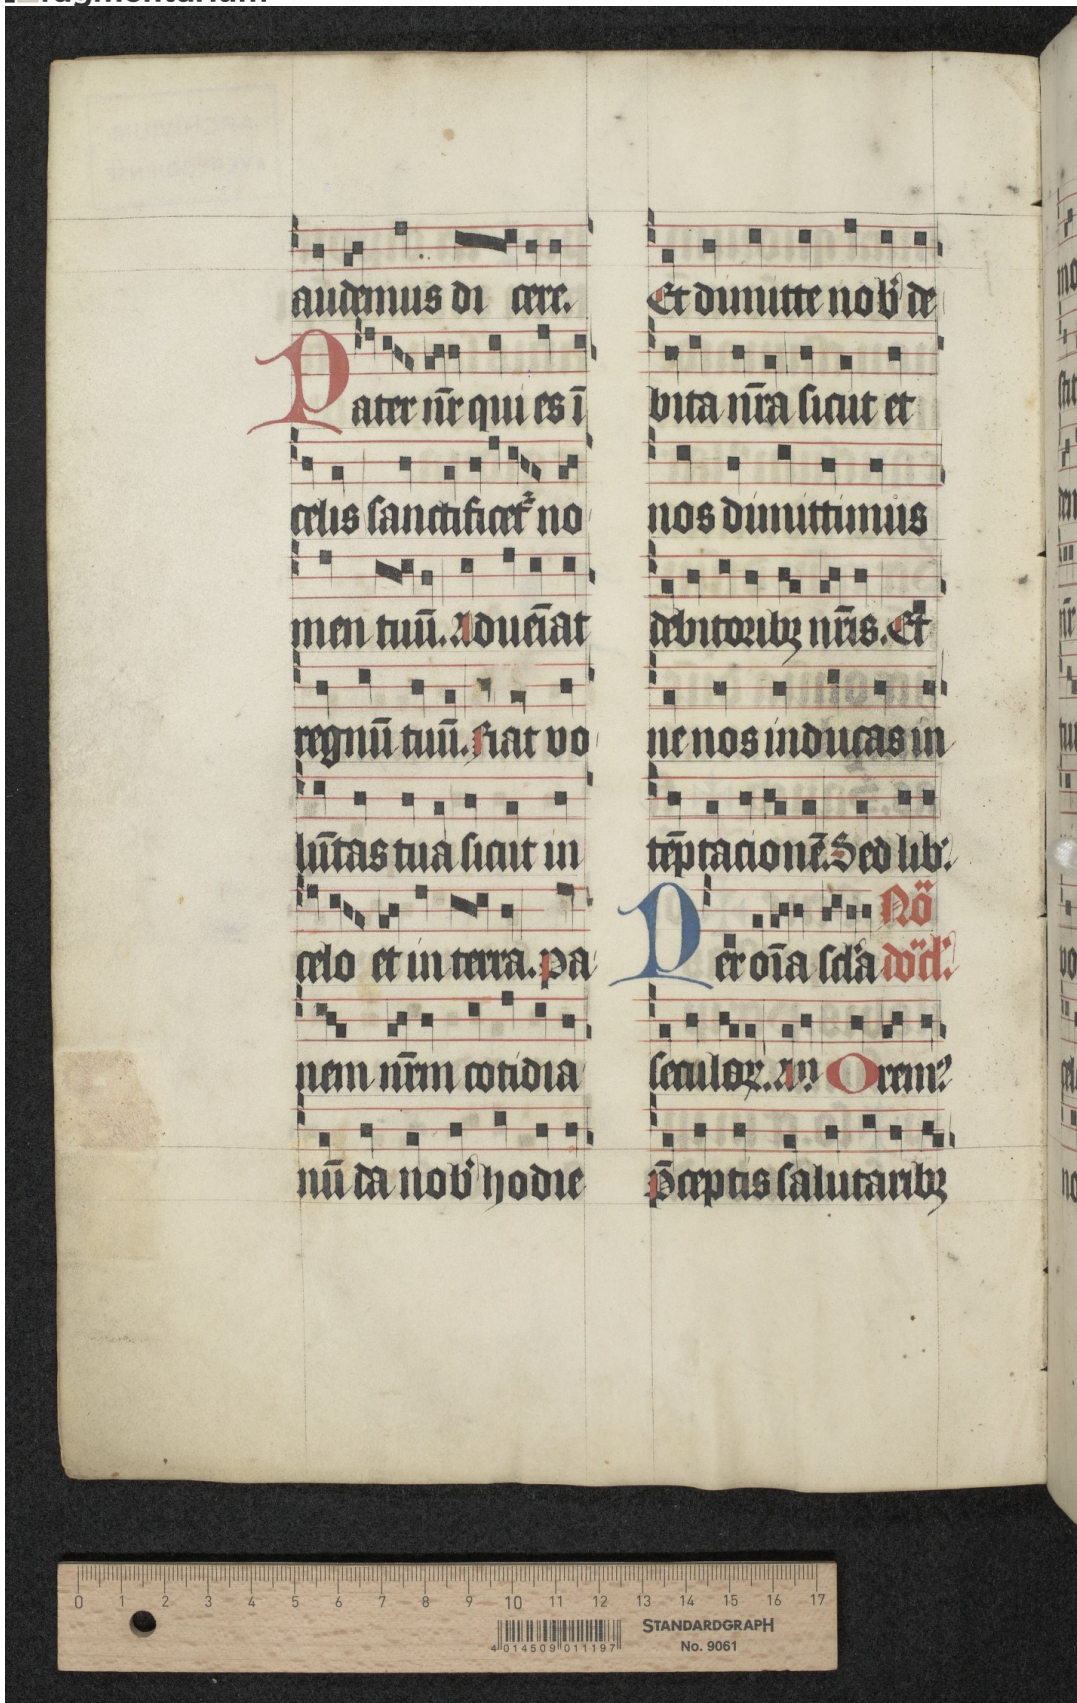 fragmentarium
audemus di cere.
Pater nr̄ qui es ī
celis sanctificet᷑ no
men tuū. Adueīat
regnū tuū. Fiat vo
lūtas tua sicut in
celo et in terra. pa
nem nr̄m cotidia
nū da nob̾ hodie
Et dimitte nob̾ de
bita nr̄a sicut et
nos dimittimus
debitoribꝫ nr̄is. Et
ne nos inducas in
tēptacionē. Sed lib᷑.
Per oīa scl̄a
seculoꝝ. am̄
Orem᷒
p̄ceptis salutaribꝫ
0 1 2 3 4 5 6 7 8 9 10 11 12 13 14 15 16 17
4 014509 011197
STANDARDGRAPH
No. 9061